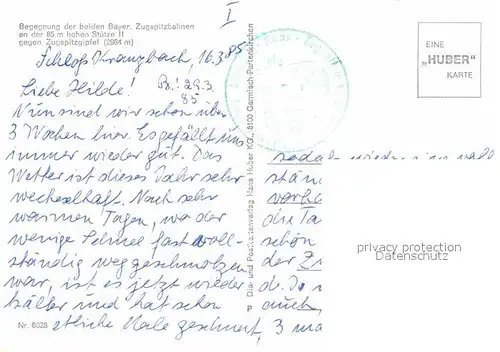 Begegnung der beiden Bayer. Zugspitzbahnen
an der 85 m hohen Stütze II
gegen Zugspitzgipfel (2964 m)
I
Schloß Kranzbach, 16.3.85
Liebe Hilde!
29.3.
85
Nun sind wir schon über
3 Wochen hier. Es gefällt uns
immer wieder gut. Das
Wetter ist dieses Jahr sehr
wechselhaft. Nach sehr
warmen Tagen, wo der
wenige Schnee fast voll-
ständig weggeschmolzen
war, ist es jetzt wieder
kälter und hat schon
etliche Male geschneit, 3 ma
Nr. 8028
Dia- und Postkartenverlag Hans Huber KG., 8100 Garmisch-Partenkirchen
EINE
„HUBER"
KARTE
sodaß wieder ein
stän
die Ta
schön
der
de. Da
auch
privacy protection
Datenschutz